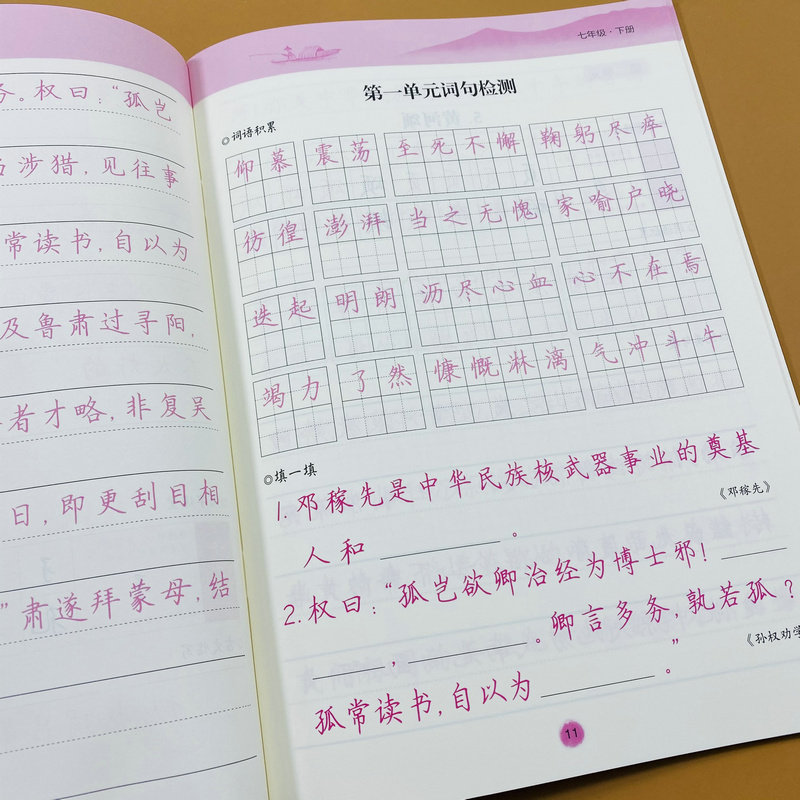 务。权曰：“孤岂
涉猎，见往事
常读书，自以为
及鲁肃过寻阳，
者才略，非复吴
日，即更刮目相
”肃遂拜蒙母，结
七年级·下册
第一单元词句检测
◎词语积累
仰慕 震荡 至死不懈 鞠躬尽瘁
彷徨 澎湃 当之无愧 家喻户晓
迭起 明朗 沥尽心血 心不在焉
竭力 了然 慷慨淋漓 气冲斗牛
◎填一填
1. 邓稼先是中华民族核武器事业的奠基
人和________。
《邓稼先》
2. 权曰：“孤岂欲卿治经为博士邪！____
____，________。卿言多务，孰若孤？
孤常读书，自以为________。”
《孙权劝学
11